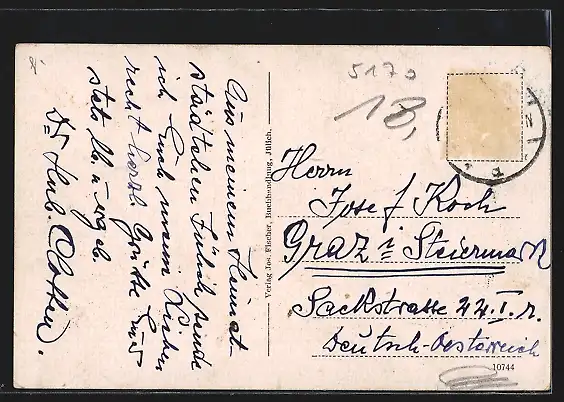 Aus meinem Heimat-
städtchen Jülich sende
ich Euch meine Lieben
recht herzl. Grüße Euer
stets
Dr
Verlag Jos. Fischer, Buchhandlung, Jülich.
5170
18,
Herrn
Josef Koch
Graz i Steiermark
Sackstrasse 22 I. r.
Deutsch-Oesterreich
10744